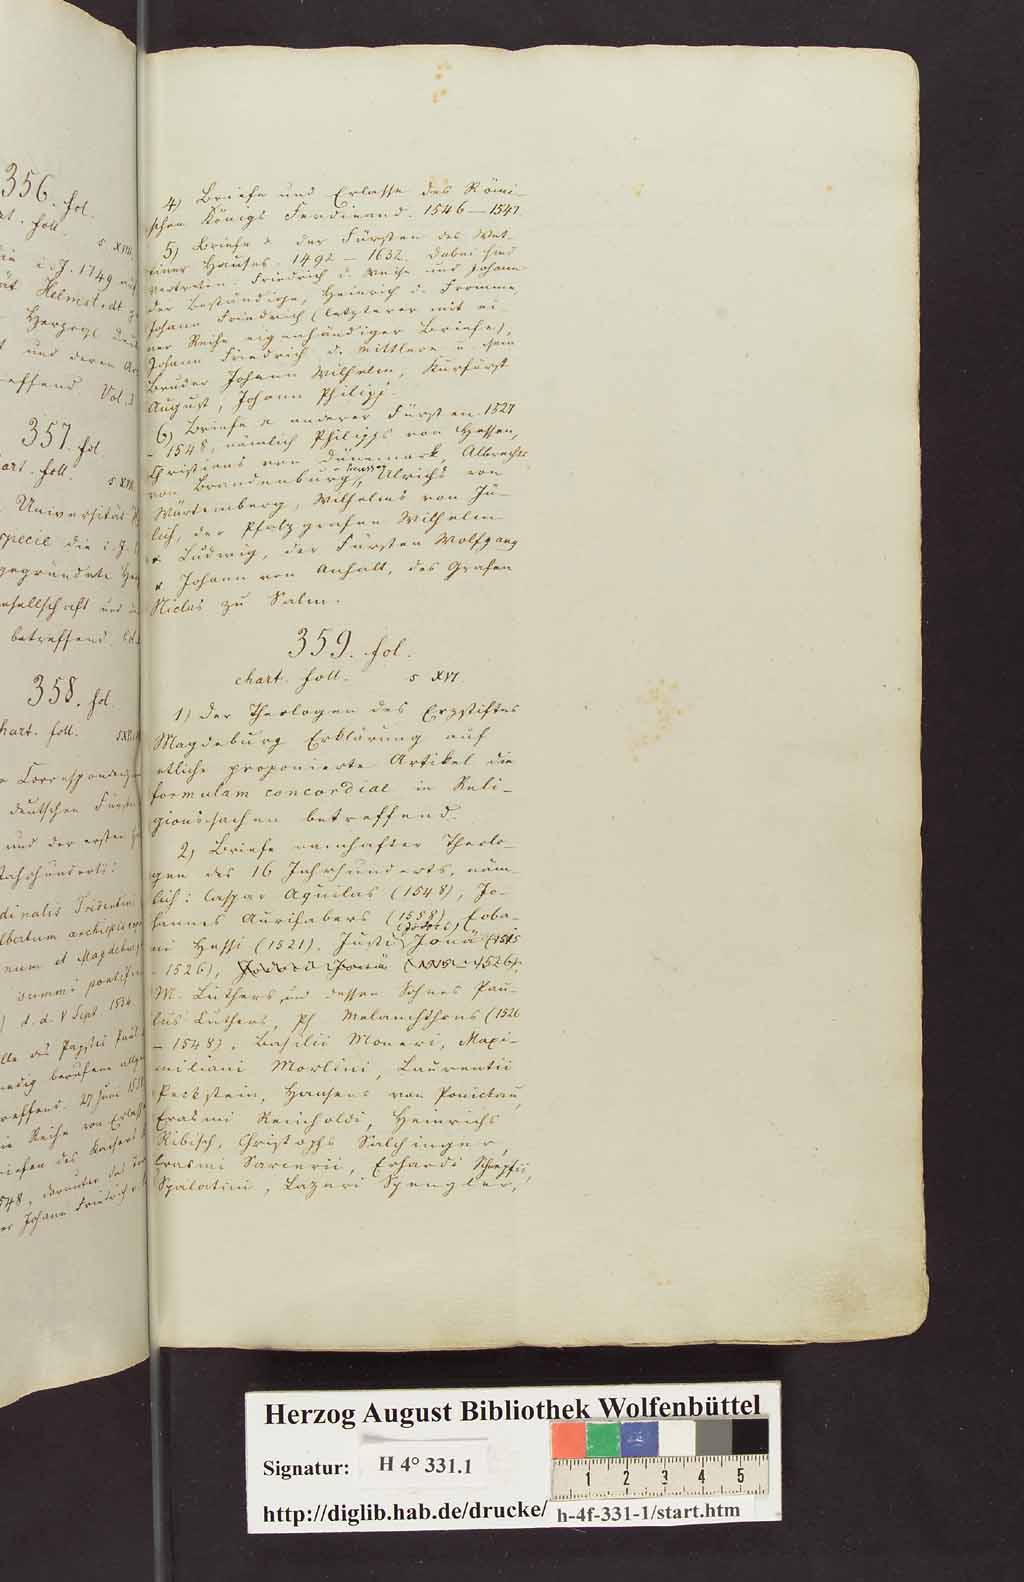 356. fol.
chart. foll. s XVIII.
die i. J. 1749 auf
Helmstedt
Herzogl.
und deren
betreffend. Vol. 3
357. fol.
chart. foll. s XVIII.
Universität
specie die i. J.
gegründete
Gesellschaft und
betreffend.
358. fol.
chart. foll. s XVI.
Correspondenz
deutschen Fürsten
und der ersten
Jahrhunderts:
dinalis Tridentini
Albertum archiepiscop
num et Magdeburg
summi pontificis
d. d. V Sept 1534.
Bulle des Papstes Paul
Venedig berufene allge
betreffend. 27 Juni 1538
Reihe von Erlassen
Briefen des Kaisers
1548, darunter das
Johann Friedrich
4) Briefe und Erlasse des Römi-
schen Königs Ferdinand. 1546 – 1547
5) Briefe der Fürsten des Wet-
tiner Hauses. 1492 – 1632. Dabei sind
vertreten: Friedrich d. Weise und Johann
der Beständige, Heinrich d. Fromme
Johann Friedrich (letzterer mit ei-
ner Reihe eigenhändiger Briefe),
Johann Friedrich d. Mittlere u. sein
Bruder Johann Wilhelm, Kurfürst
August, Johann Philipp.
6) Briefe anderer Fürsten. 1527
– 1548, nämlich Philipps von Hessen,
Christians von Dänemark, Albrechts
von Brandenburg, Ulrichs von
Würtemberg, Wilhelms von Jü-
lich, der Pfalzgrafen Wilhelm
u. Ludwig, der Fürsten Wolfgang
u. Johann von Anhalt, des Grafen
Niclas zu Salm.
359. fol.
chart. foll. s XVI.
1) Der Theologen des Erzstiftes
Magdeburg Erklärung auf
etliche proponierte Artikel die
formulam concordiae in Reli-
gionssachen betreffend.
2) Briefe namhafter Theolo-
gen des 16 Jahrhunderts, näm-
lich: Caspar Aquilas (1548), Jo-
hannes Aurifabers (1558), Eoba-
ni Hessi (1521), Justi (Jodoci) Jonä (1515
– 1526), Jodoci Jonä – 1526),
M. Luthers und dessen Sohnes Pau-
lus Luthers, Ph Melanchthons (1526
– 1548), Basilii Moneri, Maxi-
miliani Morlini, Laurentii
Peckstein, Hansens von Ponickau,
Erasmi Reinholdi, Heinrichs
Ribisch, Christophs Salchinger,
Erasmi Sarcerii, Erhardi Schnepfii,
Spalatini, Lazari Spengler,
Herzog August Bibliothek Wolfenbüttel
Signatur: H 4° 331.1
1 2 3 4 5
http://diglib.hab.de/drucke/ h-4f-331-1/start.htm